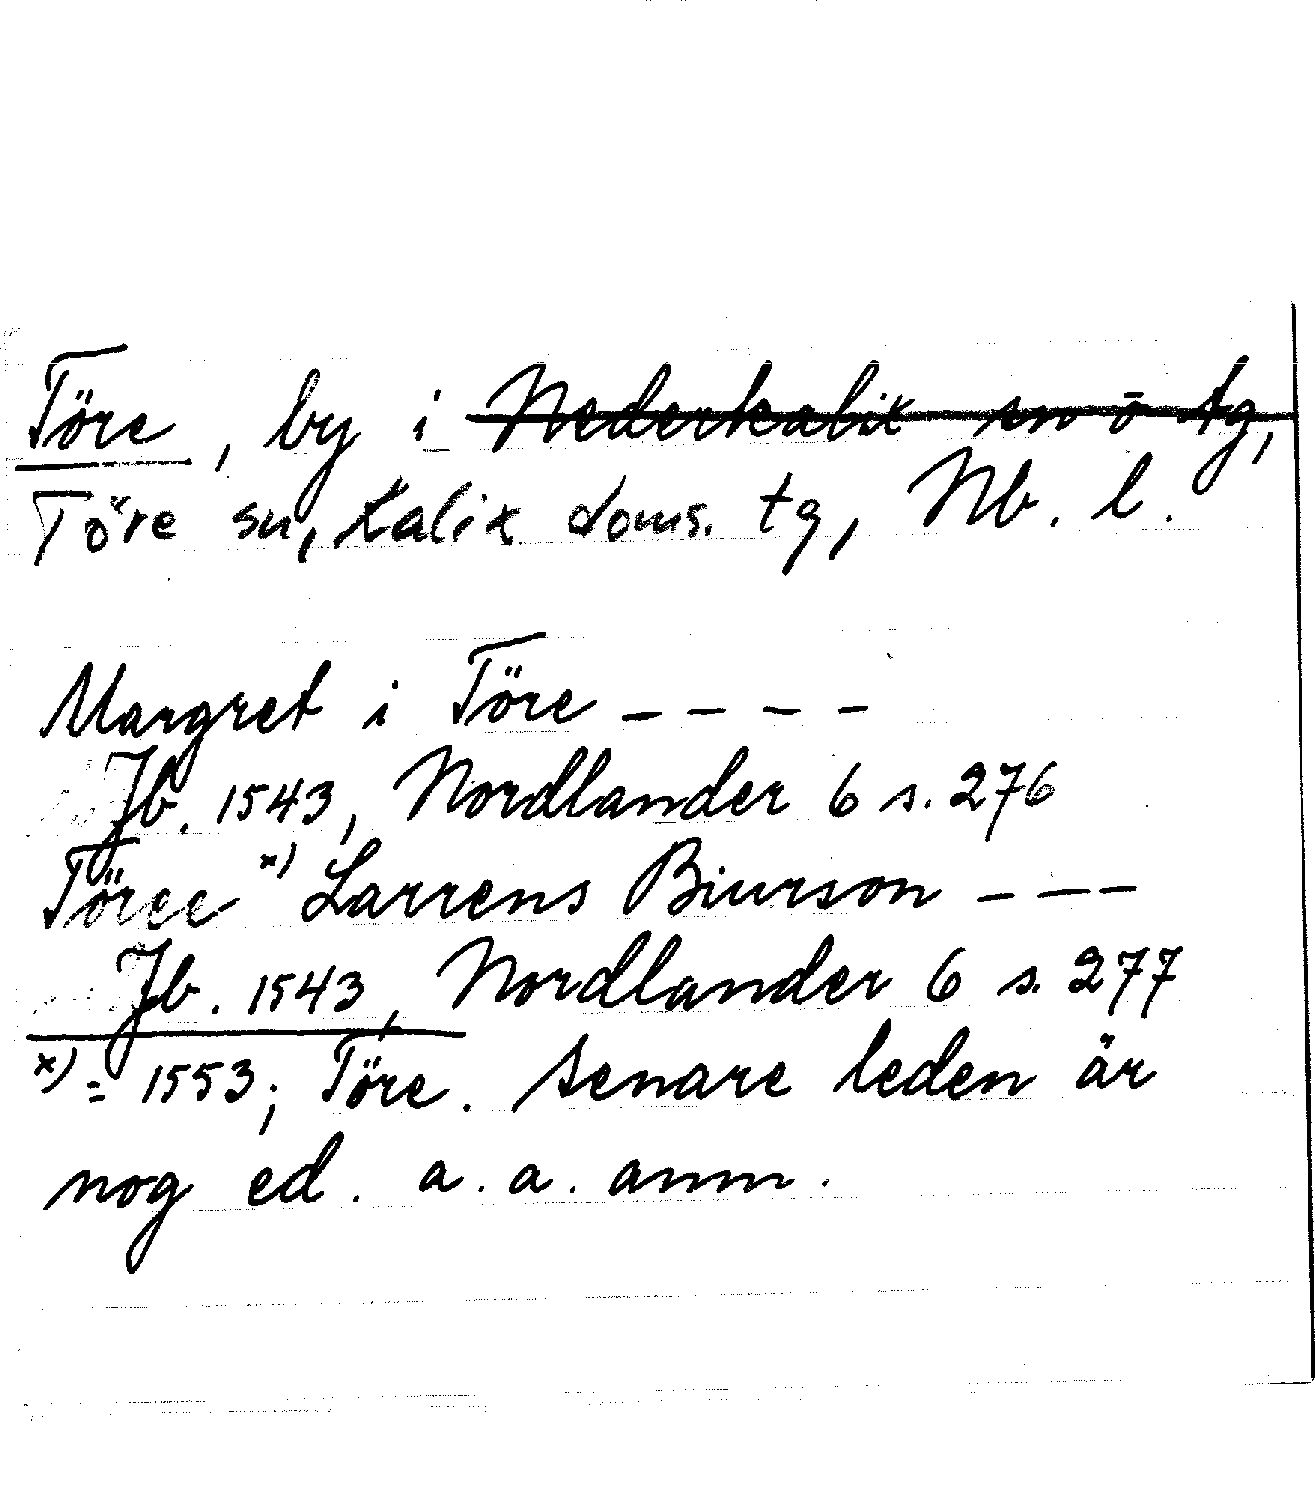 Töre, by i Nederkalix sn o tg,
Töre sn, Kalix doms. tg, Nb. l.
Margret i Töre – – – –
Jb. 1543, Nordlander 6 s. 276
Töree x) Larrens Biurson – – –
Jb. 1543, Nordlander 6 s. 277
x) = 1553; Töre. Senare leden är
nog ed. a. a. anm.